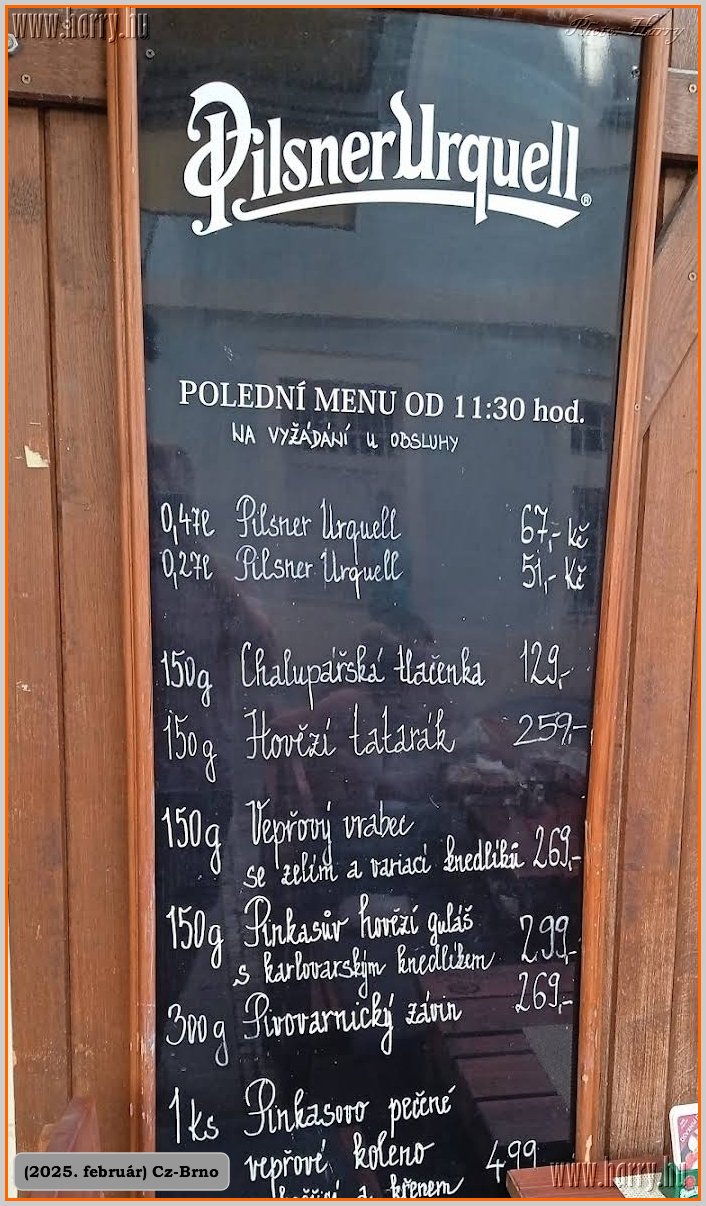 www.horry.hu
Photos Horry
Pilsner Urquell ®
POLEDNÍ MENU OD 11:30 hod.
NA VYŽÁDÁNÍ U OBSLUHY
0,47l Pilsner Urquell 67,- Kč
0,27l Pilsner Urquell 51,- Kč
150g Chalupářská tlačenka 129,-
150g Hovězí tatarák 259,-
150g Vepřový vrabec
se zelím a variací knedlíků 269,-
150g Pinkasův hovězí guláš
s karlovarským knedlíkem 299,-
300g Pivovarnický závin 269,-
1 ks Pinkasovo pečené
vepřové koleno 499
a křenem
(2025. február) Cz-Brno
www.horry.hu